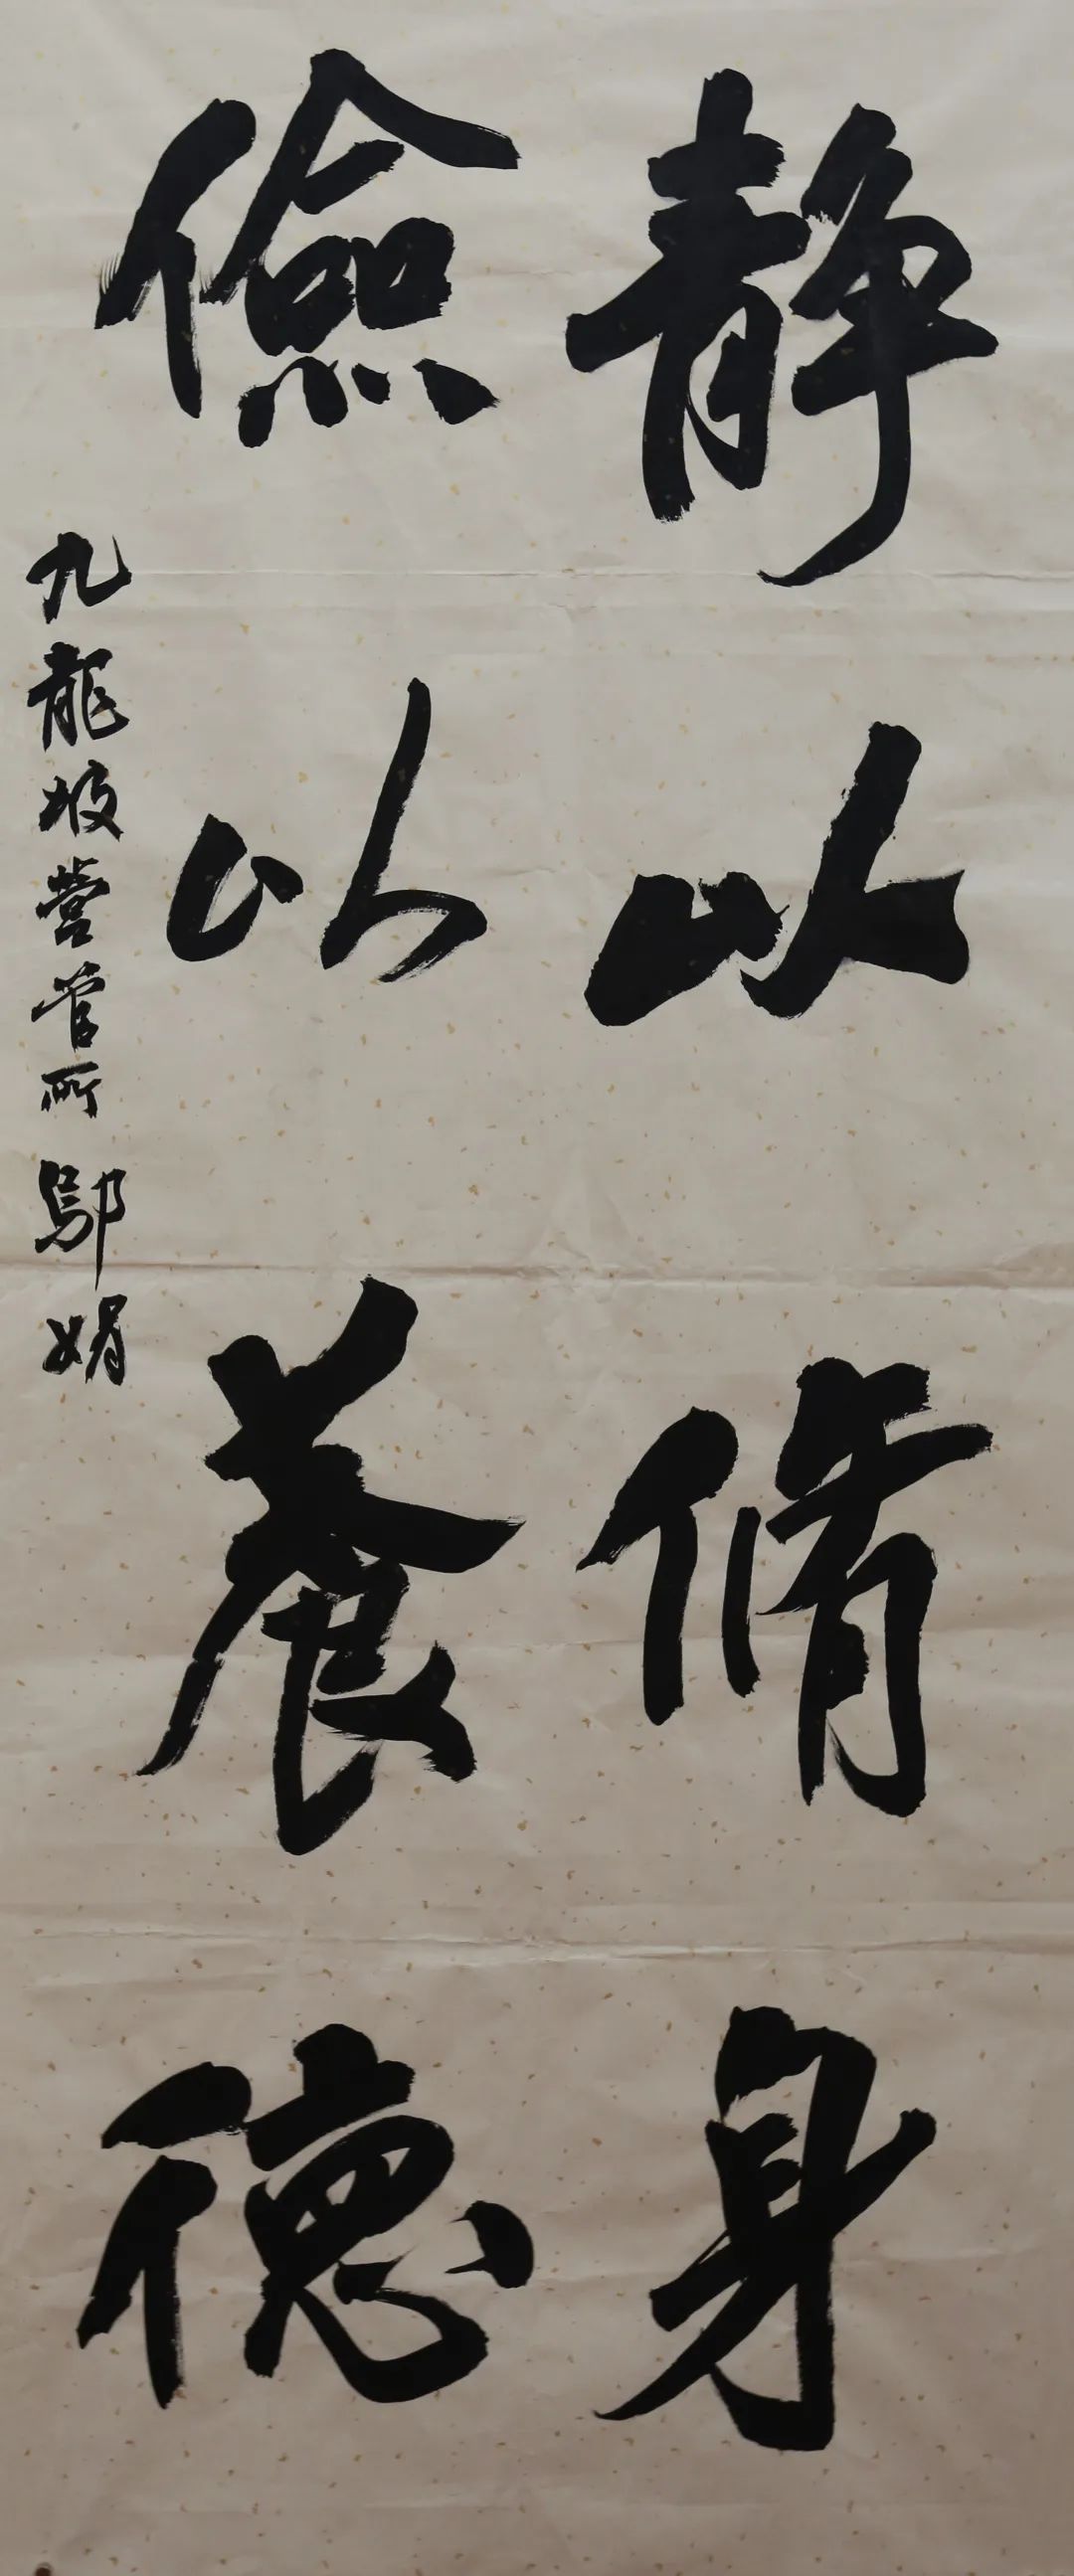 静以修身
儉以養德
九龍坡營管所 鄔娟